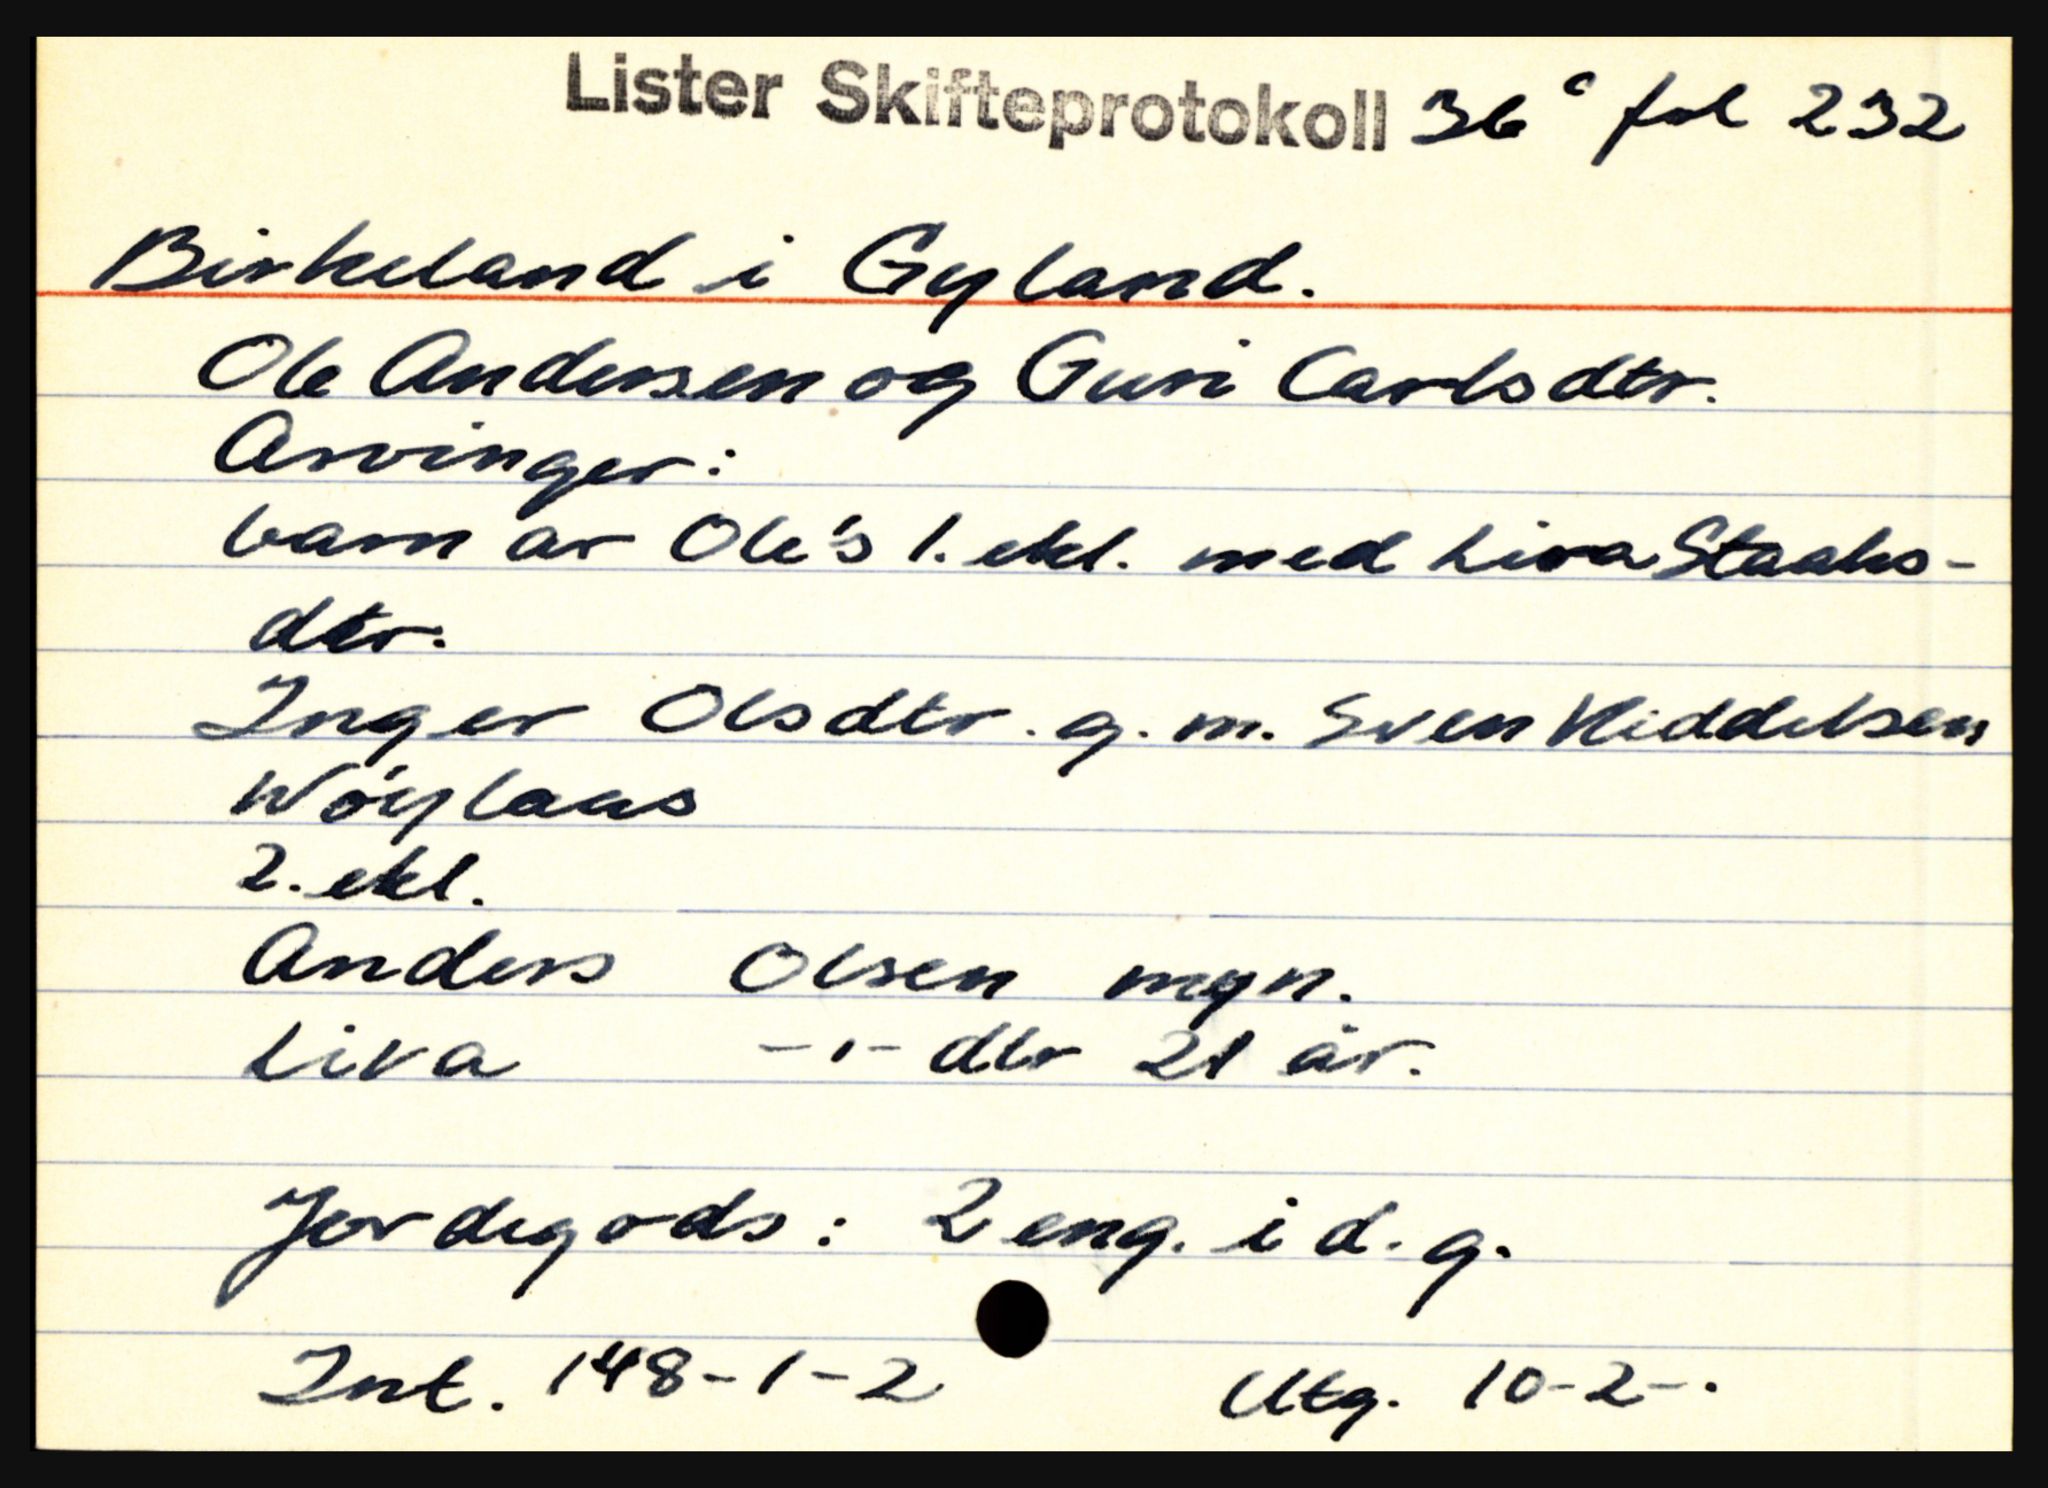 Lister Skifteprotokoll 36 c fol 232
Birkeland i Gyland.
Ole Andersen og Guri Carlsdtr.
Arvinger:
barn av Ole's 1. ekt. med Liva Staals-
dtr.
Inger Olsdtr. g. m. Sven Middelsen
Wöylaas
2. ekt.
Anders Olsen myn.
Liva -"- dtr 21 år.
Jordegods: 2 eng. i d. g.
Int. 148-1-2 Utg. 10-2-.